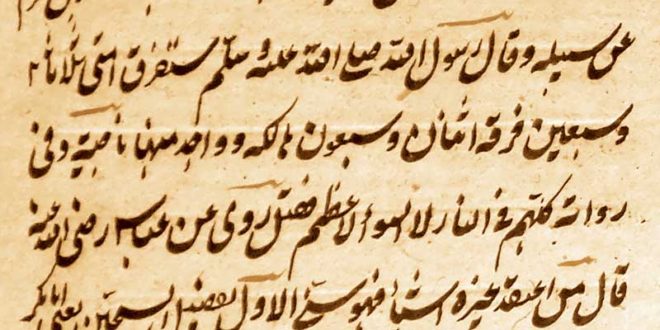 عن سبيله وقال رسول الله صلى الله عليه وسلم ستفرق امتى ثلاثا
وسبعين فرقة اثنان وسبعون هالكة وواحد منها ناجية وفى
رواية كلهم فى النار الا السواد الاعظم فصل روى عن عباس رضى الله عنه
قال من اعتقد عشرة اشياء فهو سنى الاول تفضيل الشيخين يعنى